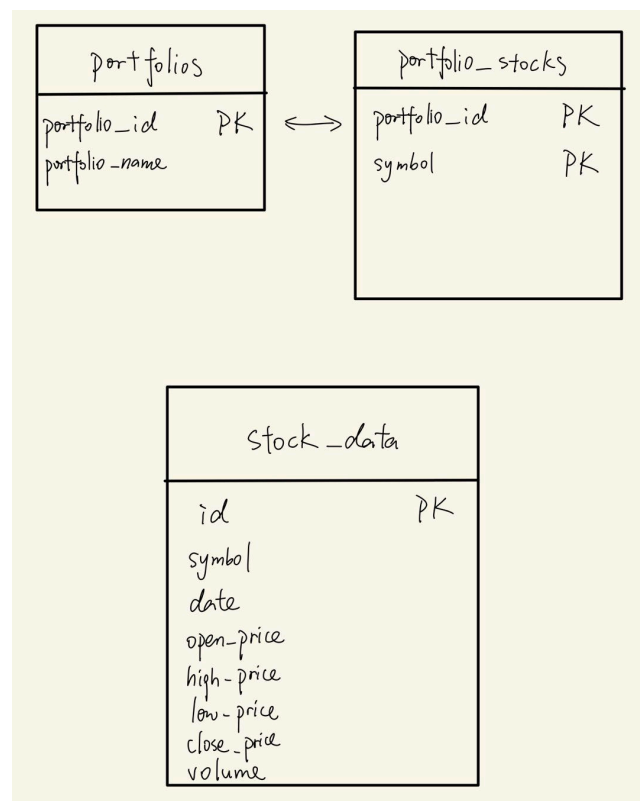 portfolios
portfolio_id PK
portfolio_name
portfolio_stocks
portfolio_id PK
symbol PK
stock_data
id PK
symbol
date
open_price
high_price
low_price
close_price
volume